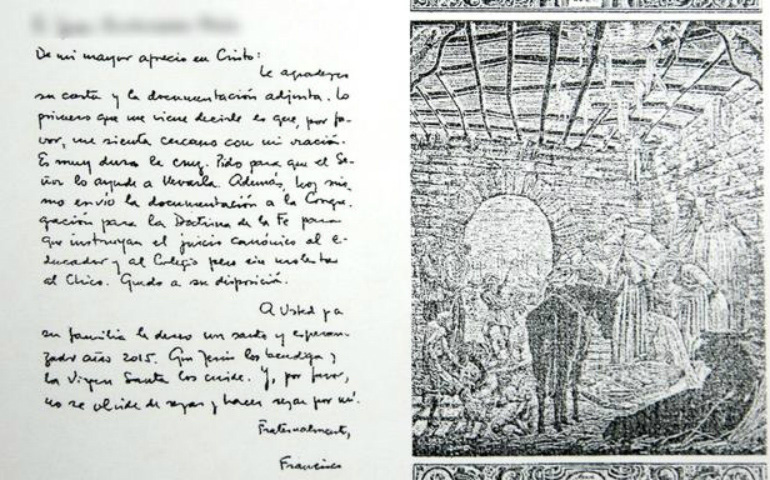 De mi mayor aprecio en Cristo:
Le agradezco
su carta y la documentación adjunta. Lo
primero que me viene decirle es que, por fa-
vor, me sienta cercano con mi oración.
Es muy dura la cruz. Pido para que el Se-
ñor lo ayude a llevarla. Además, hoy mis-
mo envío la documentación a la Congre-
gación para la Doctrina de la Fe para
que instruyan el juicio canónico al e-
ducador y al Colegio pero sin molestar
al Chico. Quedo a su disposición.
A Usted y a
su familia le deseo un santo y esperan-
zador año 2015. Que Jesús los bendiga y
la Virgen Santa los cuide. Y, por favor,
no se olvide de rezar y hacer rezar por mí.
Fraternalmente,
Francisco